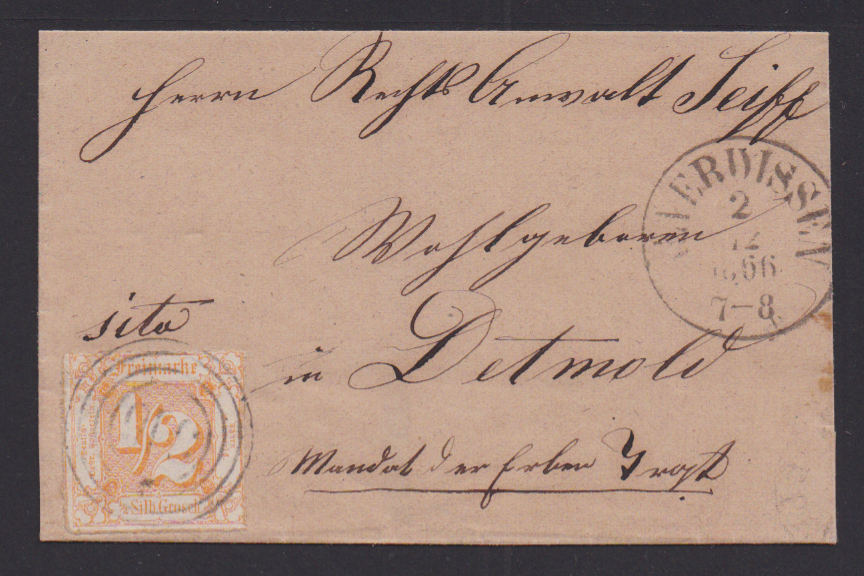 Herrn Rechts Anwalt Seiff
Wohlgeboren
cito
in Detmold
Mandat der Erben
ALVERDISSEN
2
12
1866
7-8
Freimarke
1/2
Silb. Grosch.